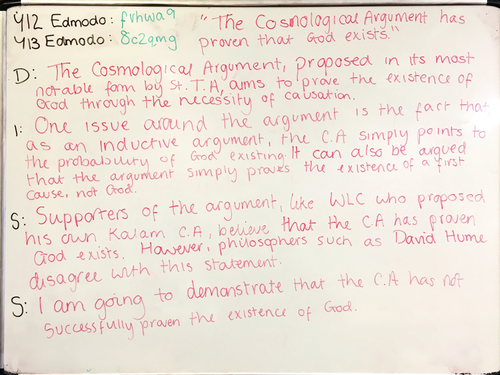 Y12 Edmodo: fvhwa9
Y13 Edmodo: 8c2qmg
"The Cosmological Argument has
proven that God exists."
D: The Cosmological Argument, proposed in its most
notable form by St. T.A, aims to prove the existence of
God through the necessity of causation.
I: One issue around the argument is the fact that
as an inductive argument, the C.A simply points to
the probability of God existing. It can also be argued
that the argument simply proves the existence of a first
cause, not God.
S: Supporters of the argument, like WLC who proposed
his own Kalam C.A, believe that the C.A has proven
God exists. However, philosophers such as David Hume
disagree with this statement.
S: I am going to demonstrate that the C.A has not
successfully proven the existence of God.